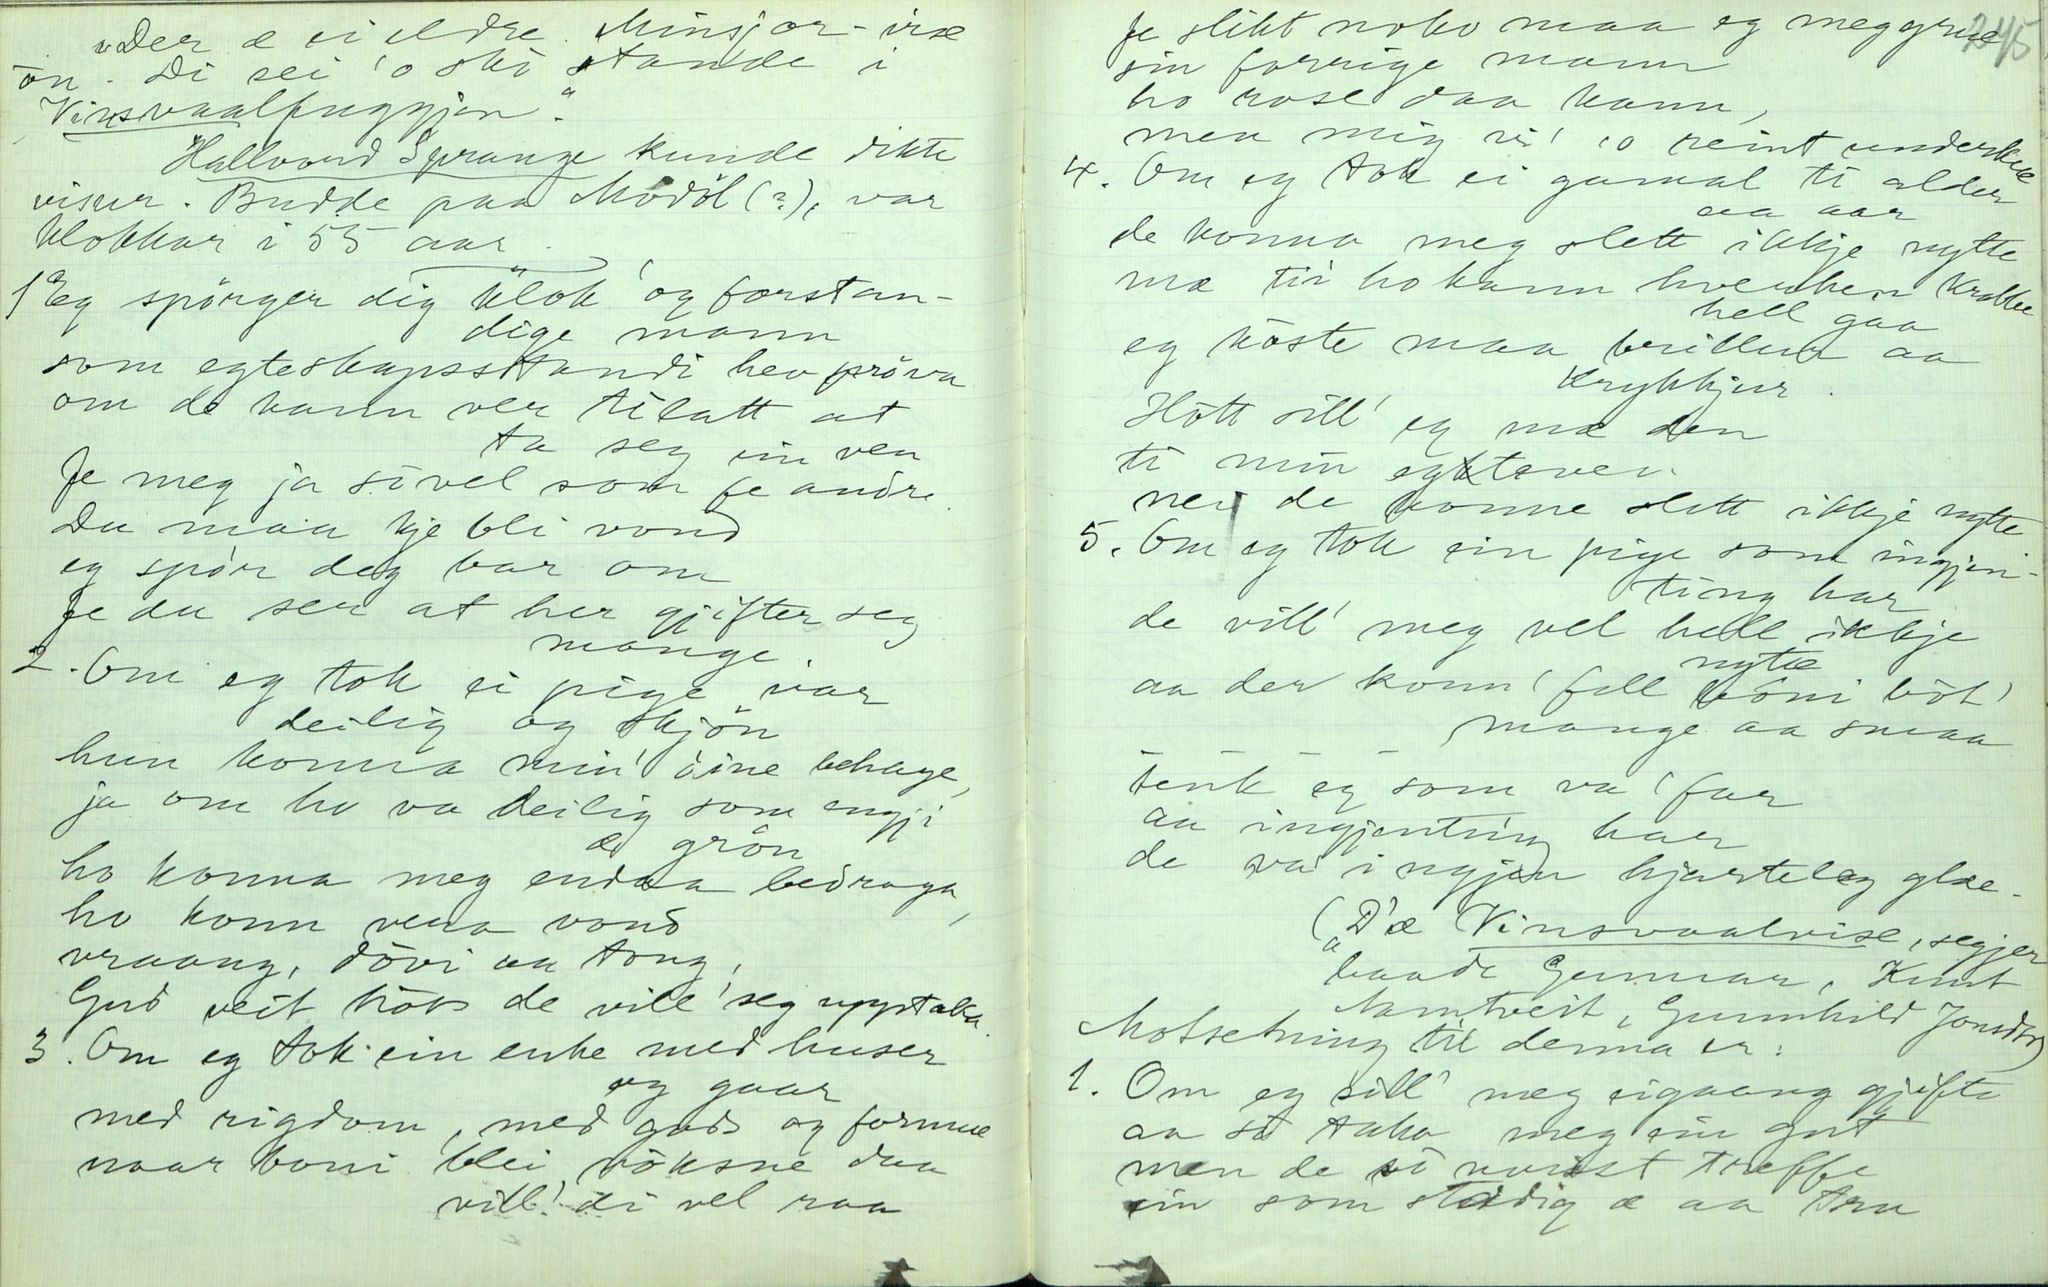 "Der æ ei eldre Minsjor-vise
ōn. Di sei 'o ska stande i
Vinsvaalfuggjen".
Hallvord Sprange kunde dikte
visur. Budde paa Modöl (?), var
klokkar i 55 aar.
1. Eg spörger dig klok' og forstan-
dige mann
som egteskapsstandi hev pröva
om de kann ver tilatt at
ta seg ein ven
fe meg ja sövel som fe andre.
Du maa kje bli vond
eg spör deg bar om
fe du ser at her gjifter seg
mange.
2. Om eg tok ei pige var
deilig og skjön
hun konna min' öine behage,
ja om ho va deilig som engji
æ grön
ho konna meg endaa bedraga,
ho konn vera vond
vraang, dövi aa tong,
Gud veit höks de vill' seg uppstaka.
3. Om eg tok ein enke med huser
og gaar
med rigdom, med gods og formue
naar boni blei vöksne daa
vill' di vel raa
245
fe slikt noko maa eg meg grue
sin forrige mann
ho rose daa kann,
men mig vi' 'o reint underkue
4. Om eg tok ei gamal ti alder
aa aar
de konna meg slett ikkje nytte
mæ ti' ho kann hverken krabbe
hell gaa
eg köste maa brillur aa
krykkjur.
Hött sill' eg mæ den
ti min egteven.
nei de konne slett ikkje nytte
5. Om eg tok ein pige som ingjen-
ting har
de vill' meg vel hell ikkje
nytte
aa der konn' fell böni böt'
mange aa smaa
– – – –
tenk eg som va' far
aa ingjenting har
de va ingjen hjarteleg glæ-
(D'æ Vinsvaalvise, segjer
baade Gunnar, Knut
Namtveit, Gunnhild Jonsdtr)
Motsetning til denna er:
1. Om eg sill' meg eigaang gjifte
aa så taka meg ein gut
men de så vist treffe
ein som stödig æ aa tru